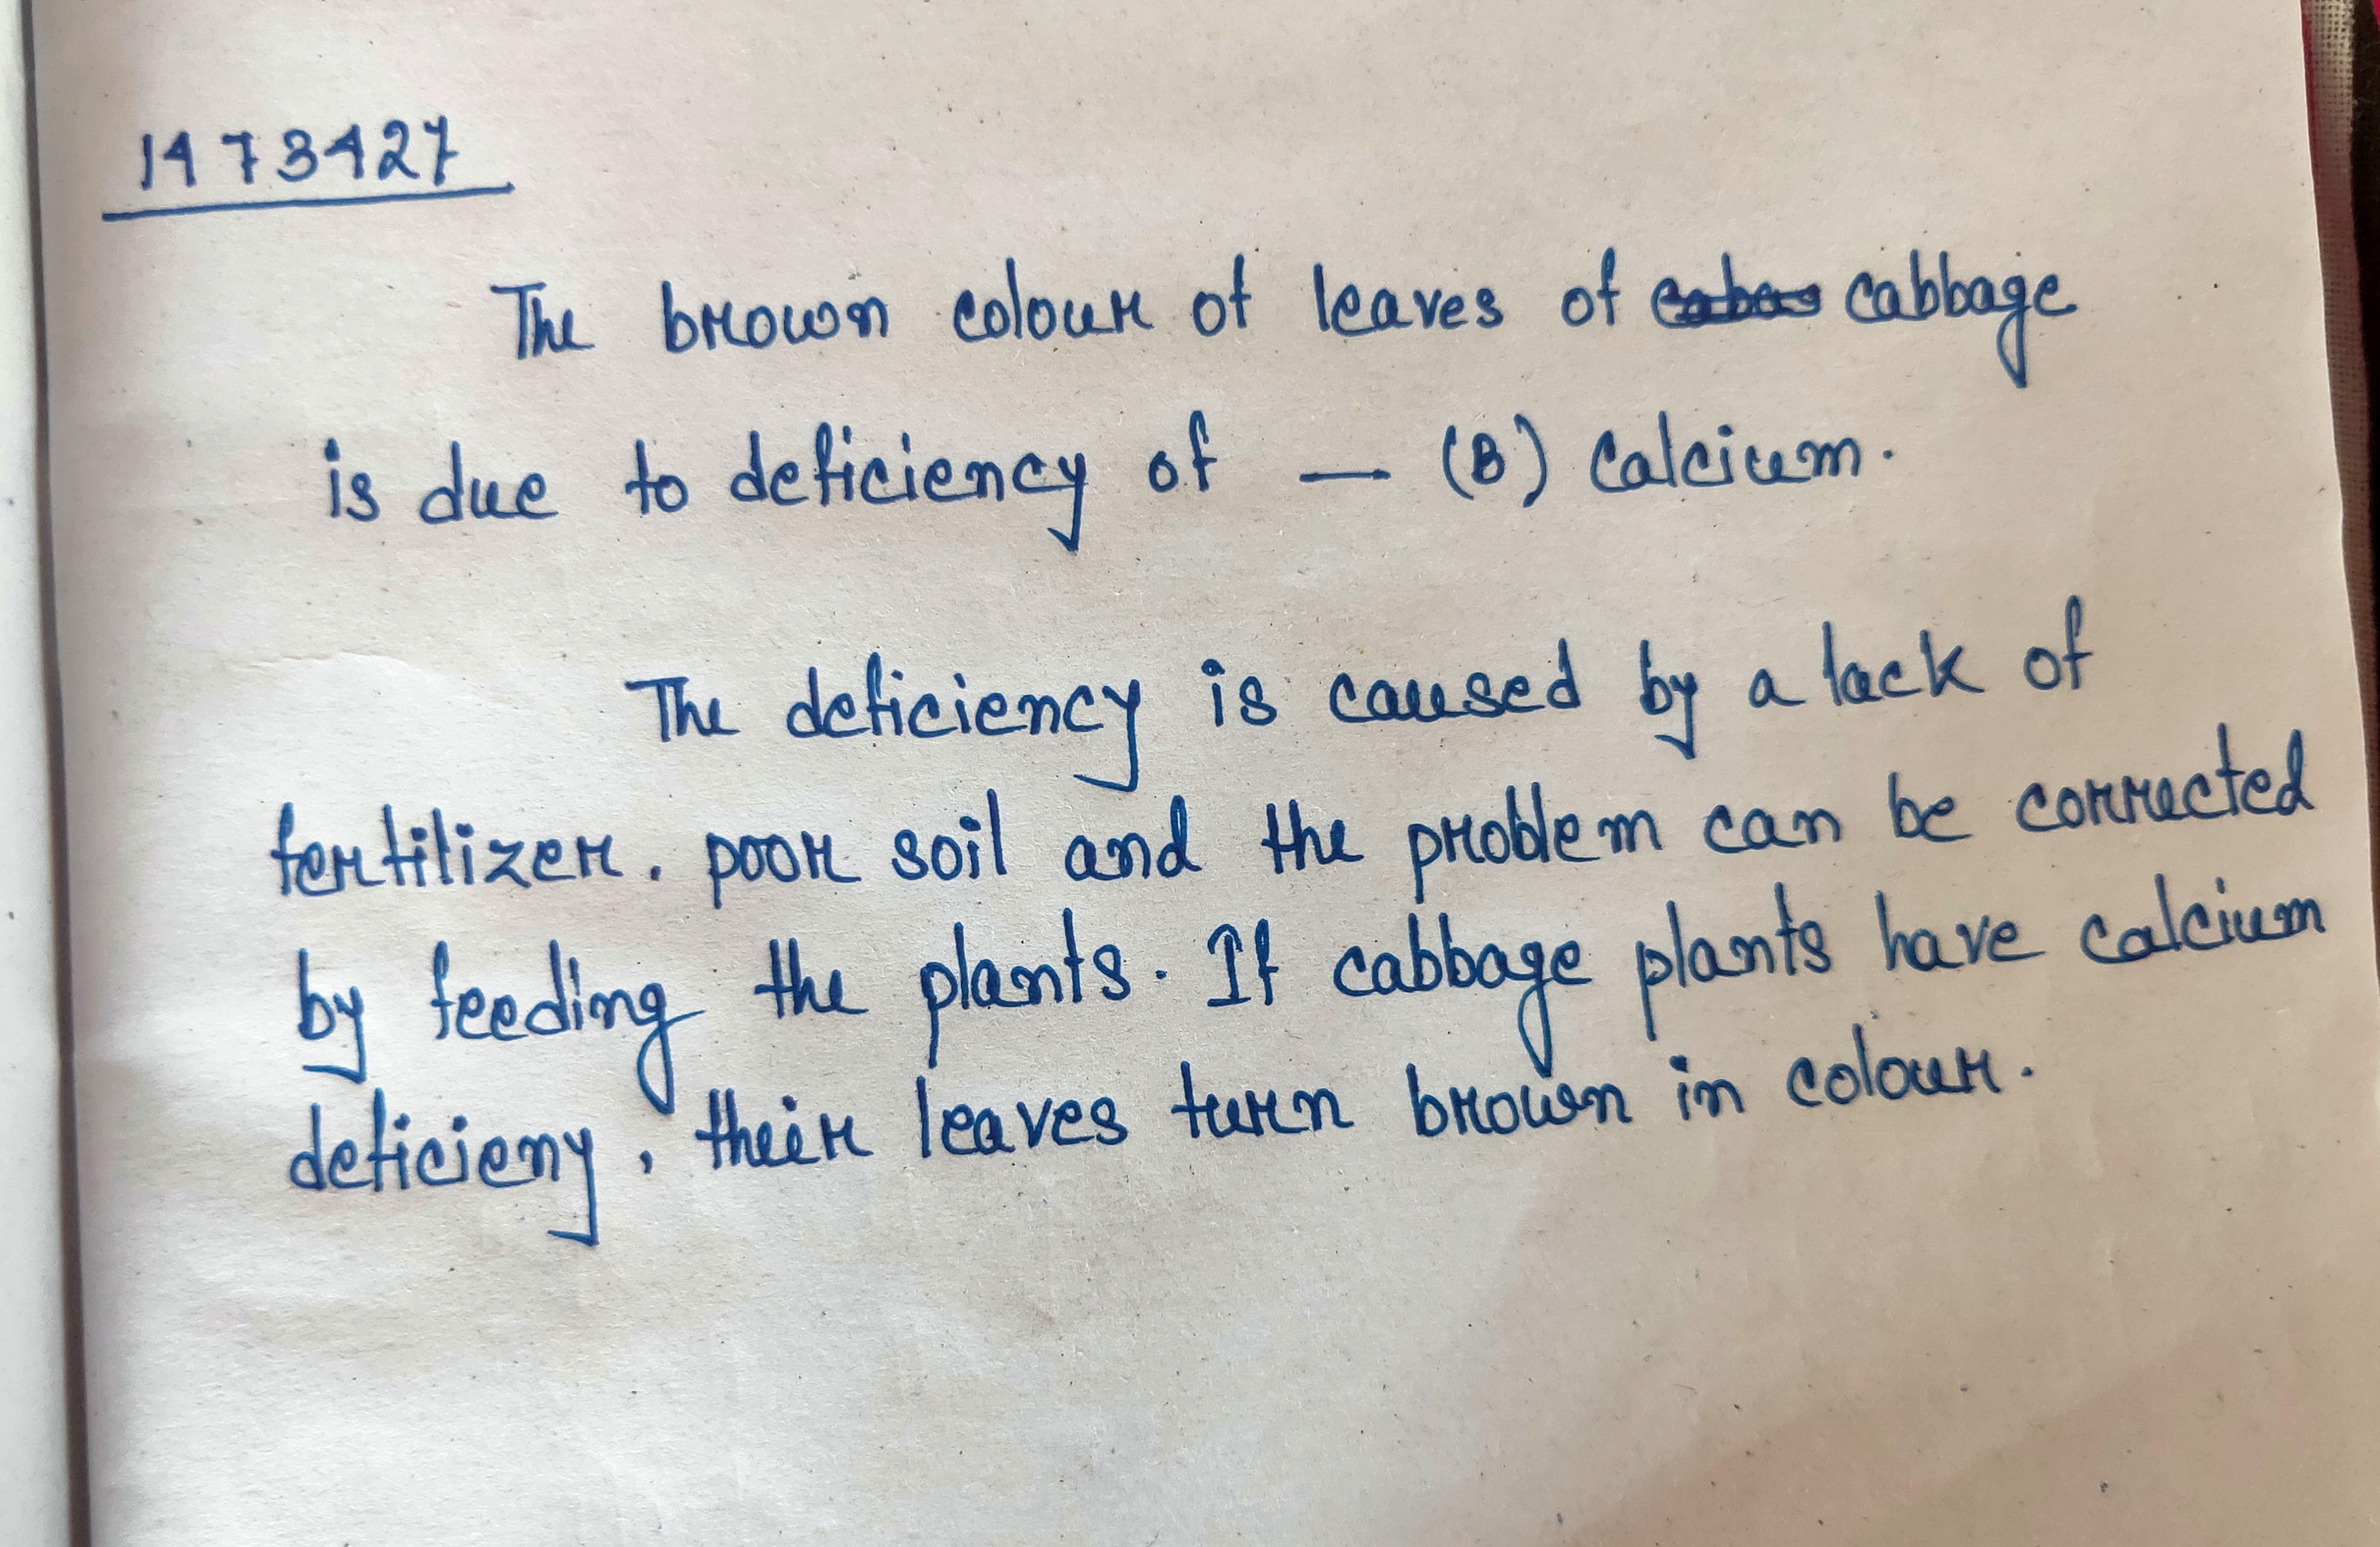 1473427
The brown colour of leaves of cabbage
is due to deficiency of — (B) Calcium.
The deficiency is caused by a lack of
fertilizer. poor soil and the problem can be corrected
by feeding the plants. If cabbage plants have calcium
deficieny, their leaves turn brown in colour.